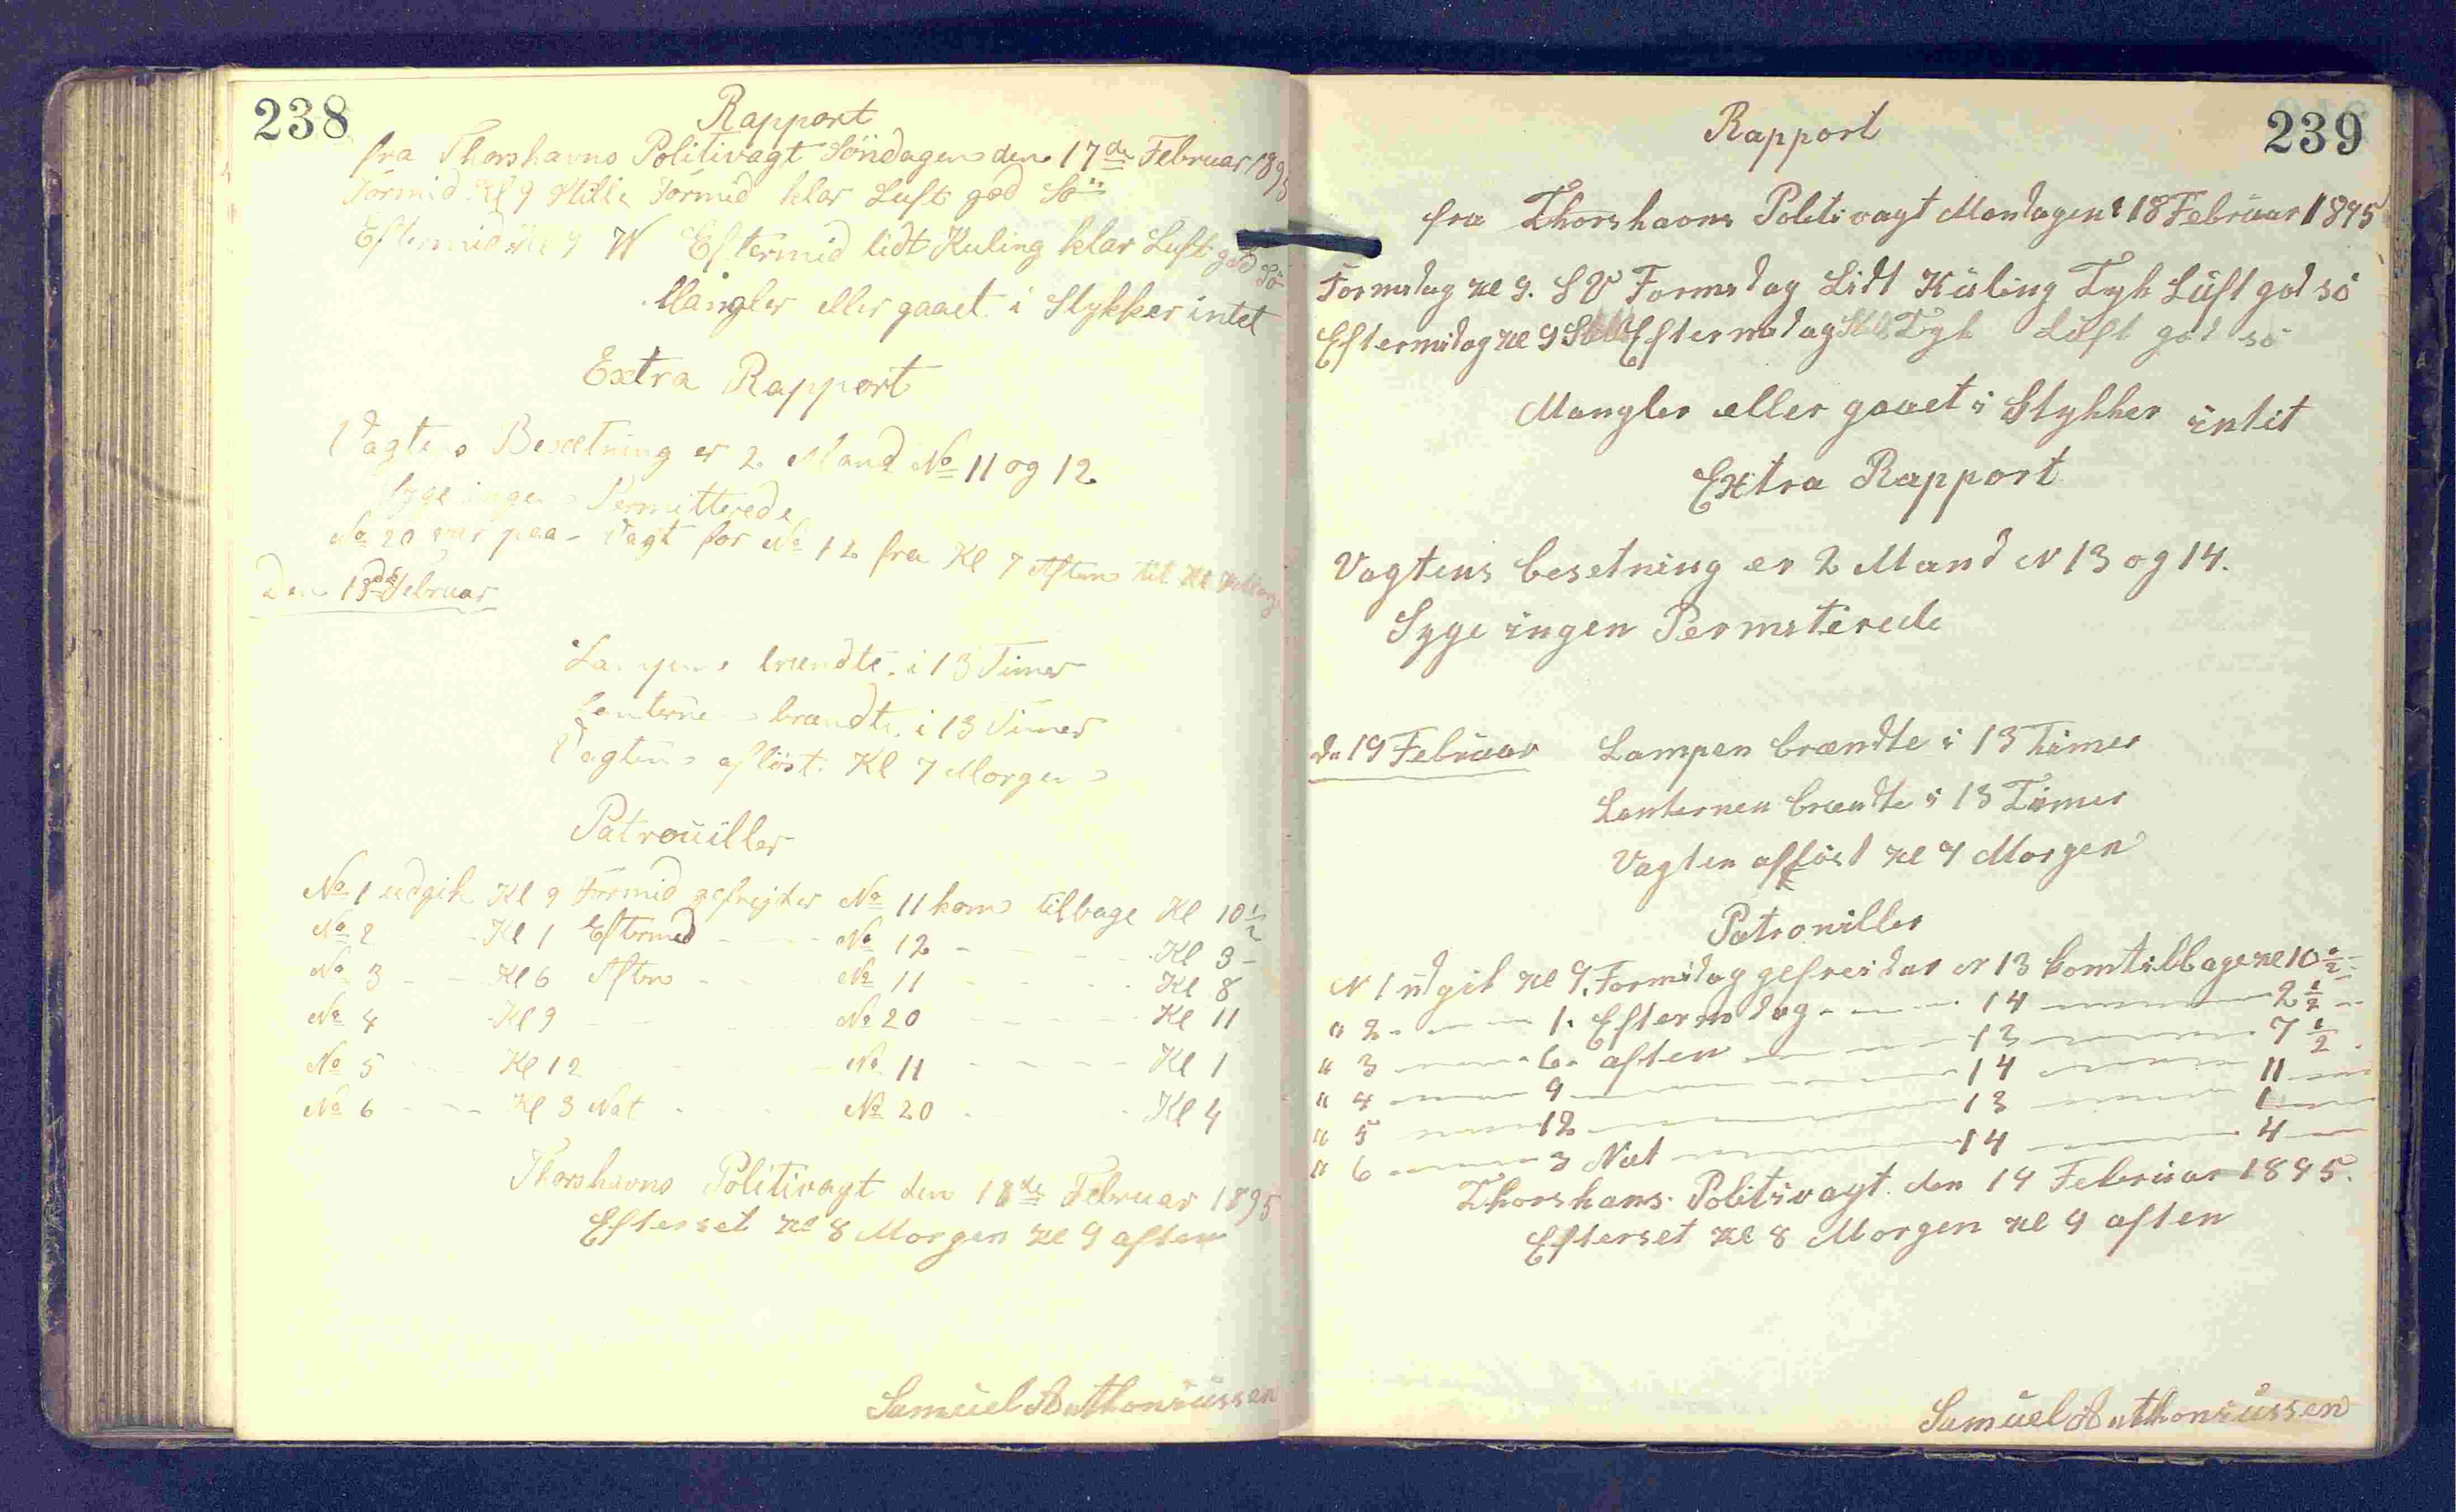 238
Rapport
fra Thorshavns Politivagt Söndagen den 17de Februar 1895
Formid Kl 9 Stille Formid klar Luft god Sö
Eftermid Kl 9 W Eftermid lidt Kuling klar Luft god Sö
Mangler eller gaaet i Stykker intet
Extra Rapport
Vagtens Besætning er 2 Mand No 11 og 12
Syge ingen Permitterede
No 20 var paa Vagt for No 12 fra Kl 7 Aften til Kl
Den 18de Februar
Lampen brændte i 13 Timer
Lanternen brændte i 13 Timer
Vagten aflöst Kl 7 Morgen
Patrouiller
No 1 udgik Kl 9 Formid gefrejder No 11 kom tilbage Kl 10 1/2
No 2 - - Kl 1 Eftermid - - - No 12 - - - - Kl 3 -
No 3 - - Kl 6 Aften - - No 11 - - - - Kl 8
No 4 - Kl 9 - - No 20 - - - - Kl 11
No 5 - - Kl 12 - - No 11 - - - - Kl 1
No 6 - - - Kl 3 Nat - - - No 20 - - Kl 4
Thorshavns Politivagt den 18de Februar 1895
Efterset Kl 8 Morgen Kl 9 aften
Samuel Anthoniussen
239
Rapport
fra Thorshavns Politivagt Mandagen 18 Februar 1895
Formidag Kl 9. SV Formidag Lidt Kuling Tyk Luft god sö
Eftermidag Kl 9 Eftermidag Tyk Luft god sö
Mangler eller gaaet i Stykker intit
Extra Rapport
Vagtens besetning er 2 Mand N 13 og 14.
Syge ingen Permiterede
de 19 Februar Lampen brændte i 13 Timer
Lanternen brændte i 13 Timer
Vagten afföst Kl 7 Morgen
Patrouiller
N 1 udgik Kl 9. Formidag gefreidar N 13 kom tilbage Kl 10 1/2
" 2 - - - 1. Eftermidag - - - 14 - - - 2 1/2 -
" 3 - - - 6. aften - - - 13 - - - 7 1/2
" 4 - - - 9 - - - 14 - - - 11 -
" 5 - - - 12 - - - 13 - - - 1 -
" 6 - - - 3 Nat - - - 14 - - - 4 -
Thorshans Politivagt den 19 Februar 1895.
Efterset Kl 8 Morgen Kl 9 aften
Samuel Anthoniussen